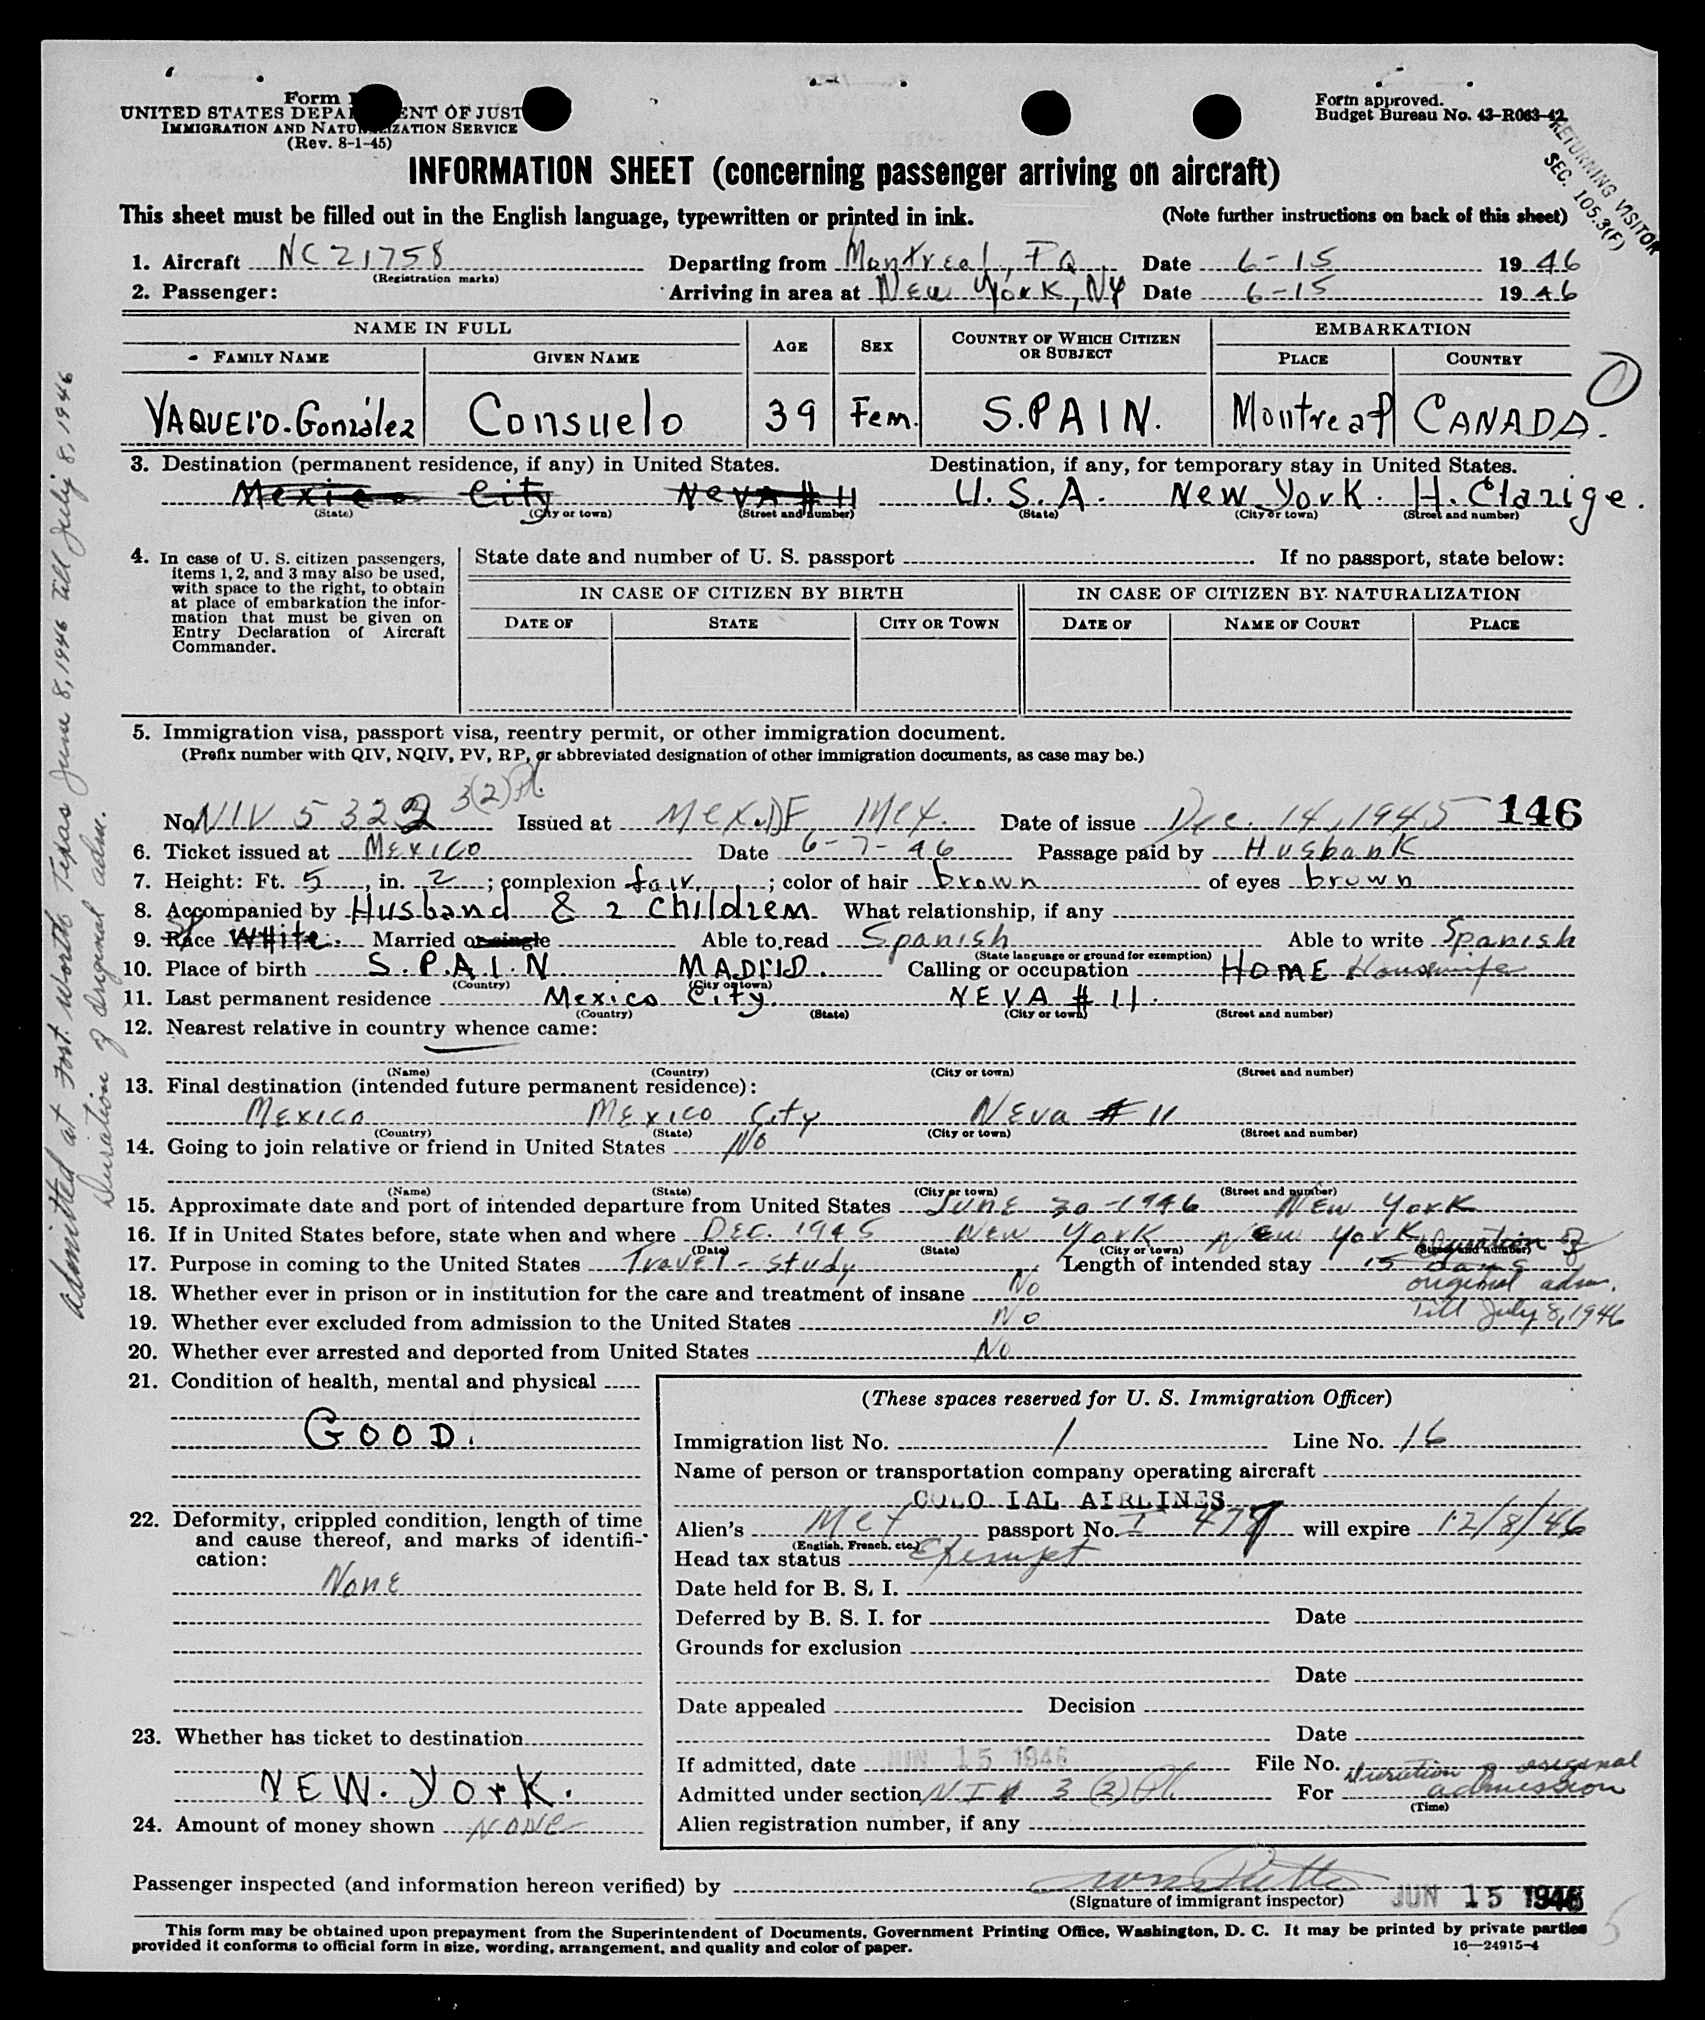 Form
UNITED STATES DEPA ENT OF JUST
IMMIGRATION AND NATU IZATION SERVICE
(Rev. 8-1-45)
Form approved.
Budget Bureau No. 43-R063-42
RETURNING VISITOR
SEC. 105.3(F)
INFORMATION SHEET (concerning passenger arriving on aircraft)
This sheet must be filled out in the English language, typewritten or printed in ink. (Note further instructions on back of this sheet)
1. Aircraft NC21758 Departing from Montreal, PQ Date 6-15 1946
(Registration marks)
2. Passenger: Arriving in area at New York, NY Date 6-15 1946
NAME IN FULL AGE SEX COUNTRY OF WHICH CITIZEN OR SUBJECT EMBARKATION
FAMILY NAME GIVEN NAME PLACE COUNTRY
VAQUErO-González Consuelo 39 Fem. S.PAIN. Montreal CANADA.
1
3. Destination (permanent residence, if any) in United States. Destination, if any, for temporary stay in United States.
Mexico City Neva # 11 U.S.A. New York. H. Clarige.
(State) (City or town) (Street and number) (State) (City or town) (Street and number)
4. In case of U. S. citizen passengers, items 1, 2, and 3 may also be used, with space to the right, to obtain at place of embarkation the information that must be given on Entry Declaration of Aircraft Commander.
State date and number of U. S. passport If no passport, state below:
IN CASE OF CITIZEN BY BIRTH IN CASE OF CITIZEN BY NATURALIZATION
DATE OF STATE CITY OR TOWN DATE OF NAME OF COURT PLACE
5. Immigration visa, passport visa, reentry permit, or other immigration document.
(Prefix number with QIV, NQIV, PV, RP, or abbreviated designation of other immigration documents, as case may be.)
3(2)Pl.
No. NIV 5322 Issued at Mex. DF, Mex. Date of issue Dec. 14, 1945 146
6. Ticket issued at Mexico Date 6-7-46 Passage paid by Husbank
7. Height: Ft. 5, in. 2; complexion fair; color of hair brown of eyes brown
8. Accompanied by Husband & 2 childrem What relationship, if any
9. Race White. Married or single Able to read Spanish Able to write Spanish
(State language or ground for exemption)
10. Place of birth S.P.A.I.N MADrID. Calling or occupation HOME Housewife
(Country) (City or town)
11. Last permanent residence Mexico City. NEVA # 11.
(Country) (State) (City or town) (Street and number)
12. Nearest relative in country whence came:
(Name) (Country) (City or town) (Street and number)
13. Final destination (intended future permanent residence):
Mexico Mexico City Neva # 11
(Country) (State) (City or town) (Street and number)
14. Going to join relative or friend in United States No
(Name) (State) (City or town) (Street and number)
15. Approximate date and port of intended departure from United States June 30-1946 New York
16. If in United States before, state when and where Dec. 1945 New York New York
(Date) (State) (City or town) (Street and number)
17. Purpose in coming to the United States Travel - study Length of intended stay 15 days
Duration of original adm. till July 8, 1946
18. Whether ever in prison or in institution for the care and treatment of insane No
19. Whether ever excluded from admission to the United States No
20. Whether ever arrested and deported from United States No
21. Condition of health, mental and physical
GOOD.
22. Deformity, crippled condition, length of time and cause thereof, and marks of identification:
None
23. Whether has ticket to destination
NEW. York.
24. Amount of money shown NONE
(These spaces reserved for U. S. Immigration Officer)
Immigration list No. 1 Line No. 16
Name of person or transportation company operating aircraft
COLO IAL AIRLINES
Alien's Mex passport No. I 477 will expire 12/8/46
(English, French, etc.)
Head tax status Exempt
Date held for B. S. I.
Deferred by B. S. I. for Date
Grounds for exclusion
Date
Date appealed Decision
Date
If admitted, date JUN 15 1946 File No.
Admitted under section 3 (2) Pl. For Duration of original admission
(Time)
Alien registration number, if any
Passenger inspected (and information hereon verified) by
(Signature of immigrant inspector) JUN 15 1946
This form may be obtained upon prepayment from the Superintendent of Documents, Government Printing Office, Washington, D. C. It may be printed by private parties
provided it conforms to official form in size, wording, arrangement, and quality and color of paper. 16—24915-4
Admitted at Fort Worth Texas June 8, 1946 till July 8, 1946
Duration of original adm.